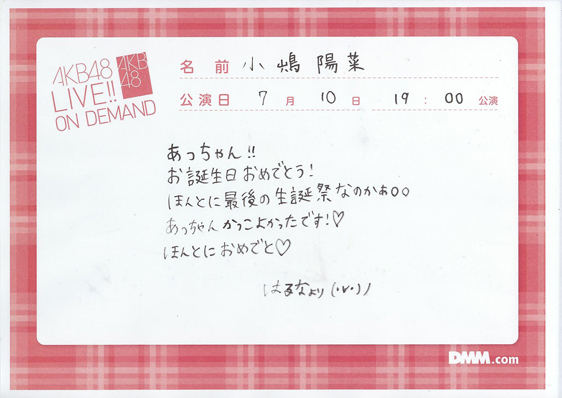 AKB48
LIVE!!
ON DEMAND
AKB
48
名前 小嶋陽菜
公演日 7月10日 19:00 公演
あっちゃん!!
お誕生日おめでとう!
ほんとに最後の生誕祭なのかぁ○○
あっちゃんかっこよかったです!♡
ほんとにおめでと♡
はるなより(・v・)ノ
DMM.com